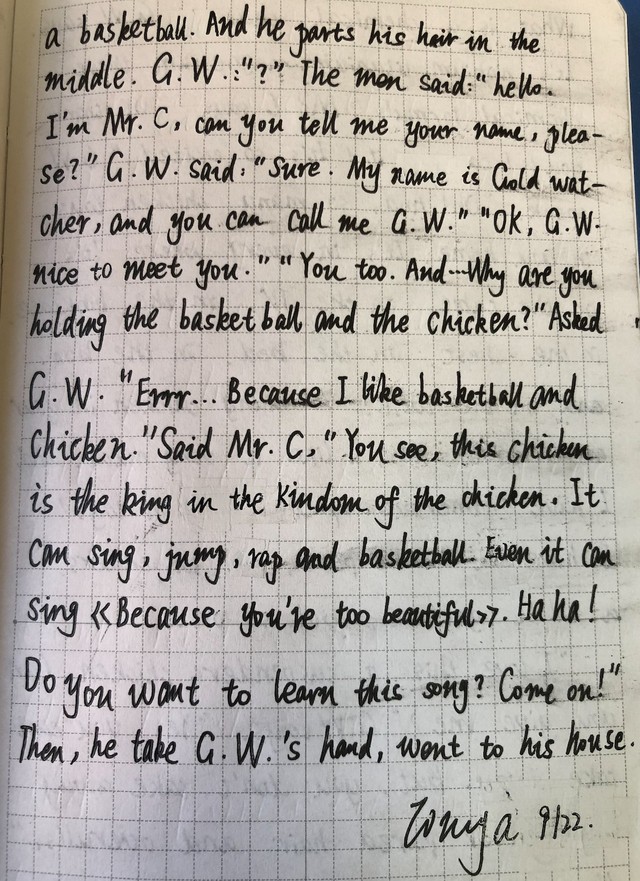 a basketball. And he parts his hair in the
middle. G.W.:"?" The man said:"hello.
I'm Mr. C, can you tell me your name, plea-
se?" G.W. said: "Sure. My name is Gold wat-
cher, and you can call me G.W." "Ok, G.W.
nice to meet you." "You too. And...Why are you
holding the basketball and the chicken?" Asked
G.W. "Errr... Because I like basketball and
Chicken." Said Mr. C, "You see, this chicken
is the king in the kindom of the chicken. It
can sing, jump, rap and basketball. Even it can
sing «Because you're too beautiful». Ha ha!
Do you want to learn this song? Come on!"
Then, he take G.W.'s hand, went to his house.
Tonya 9/22.